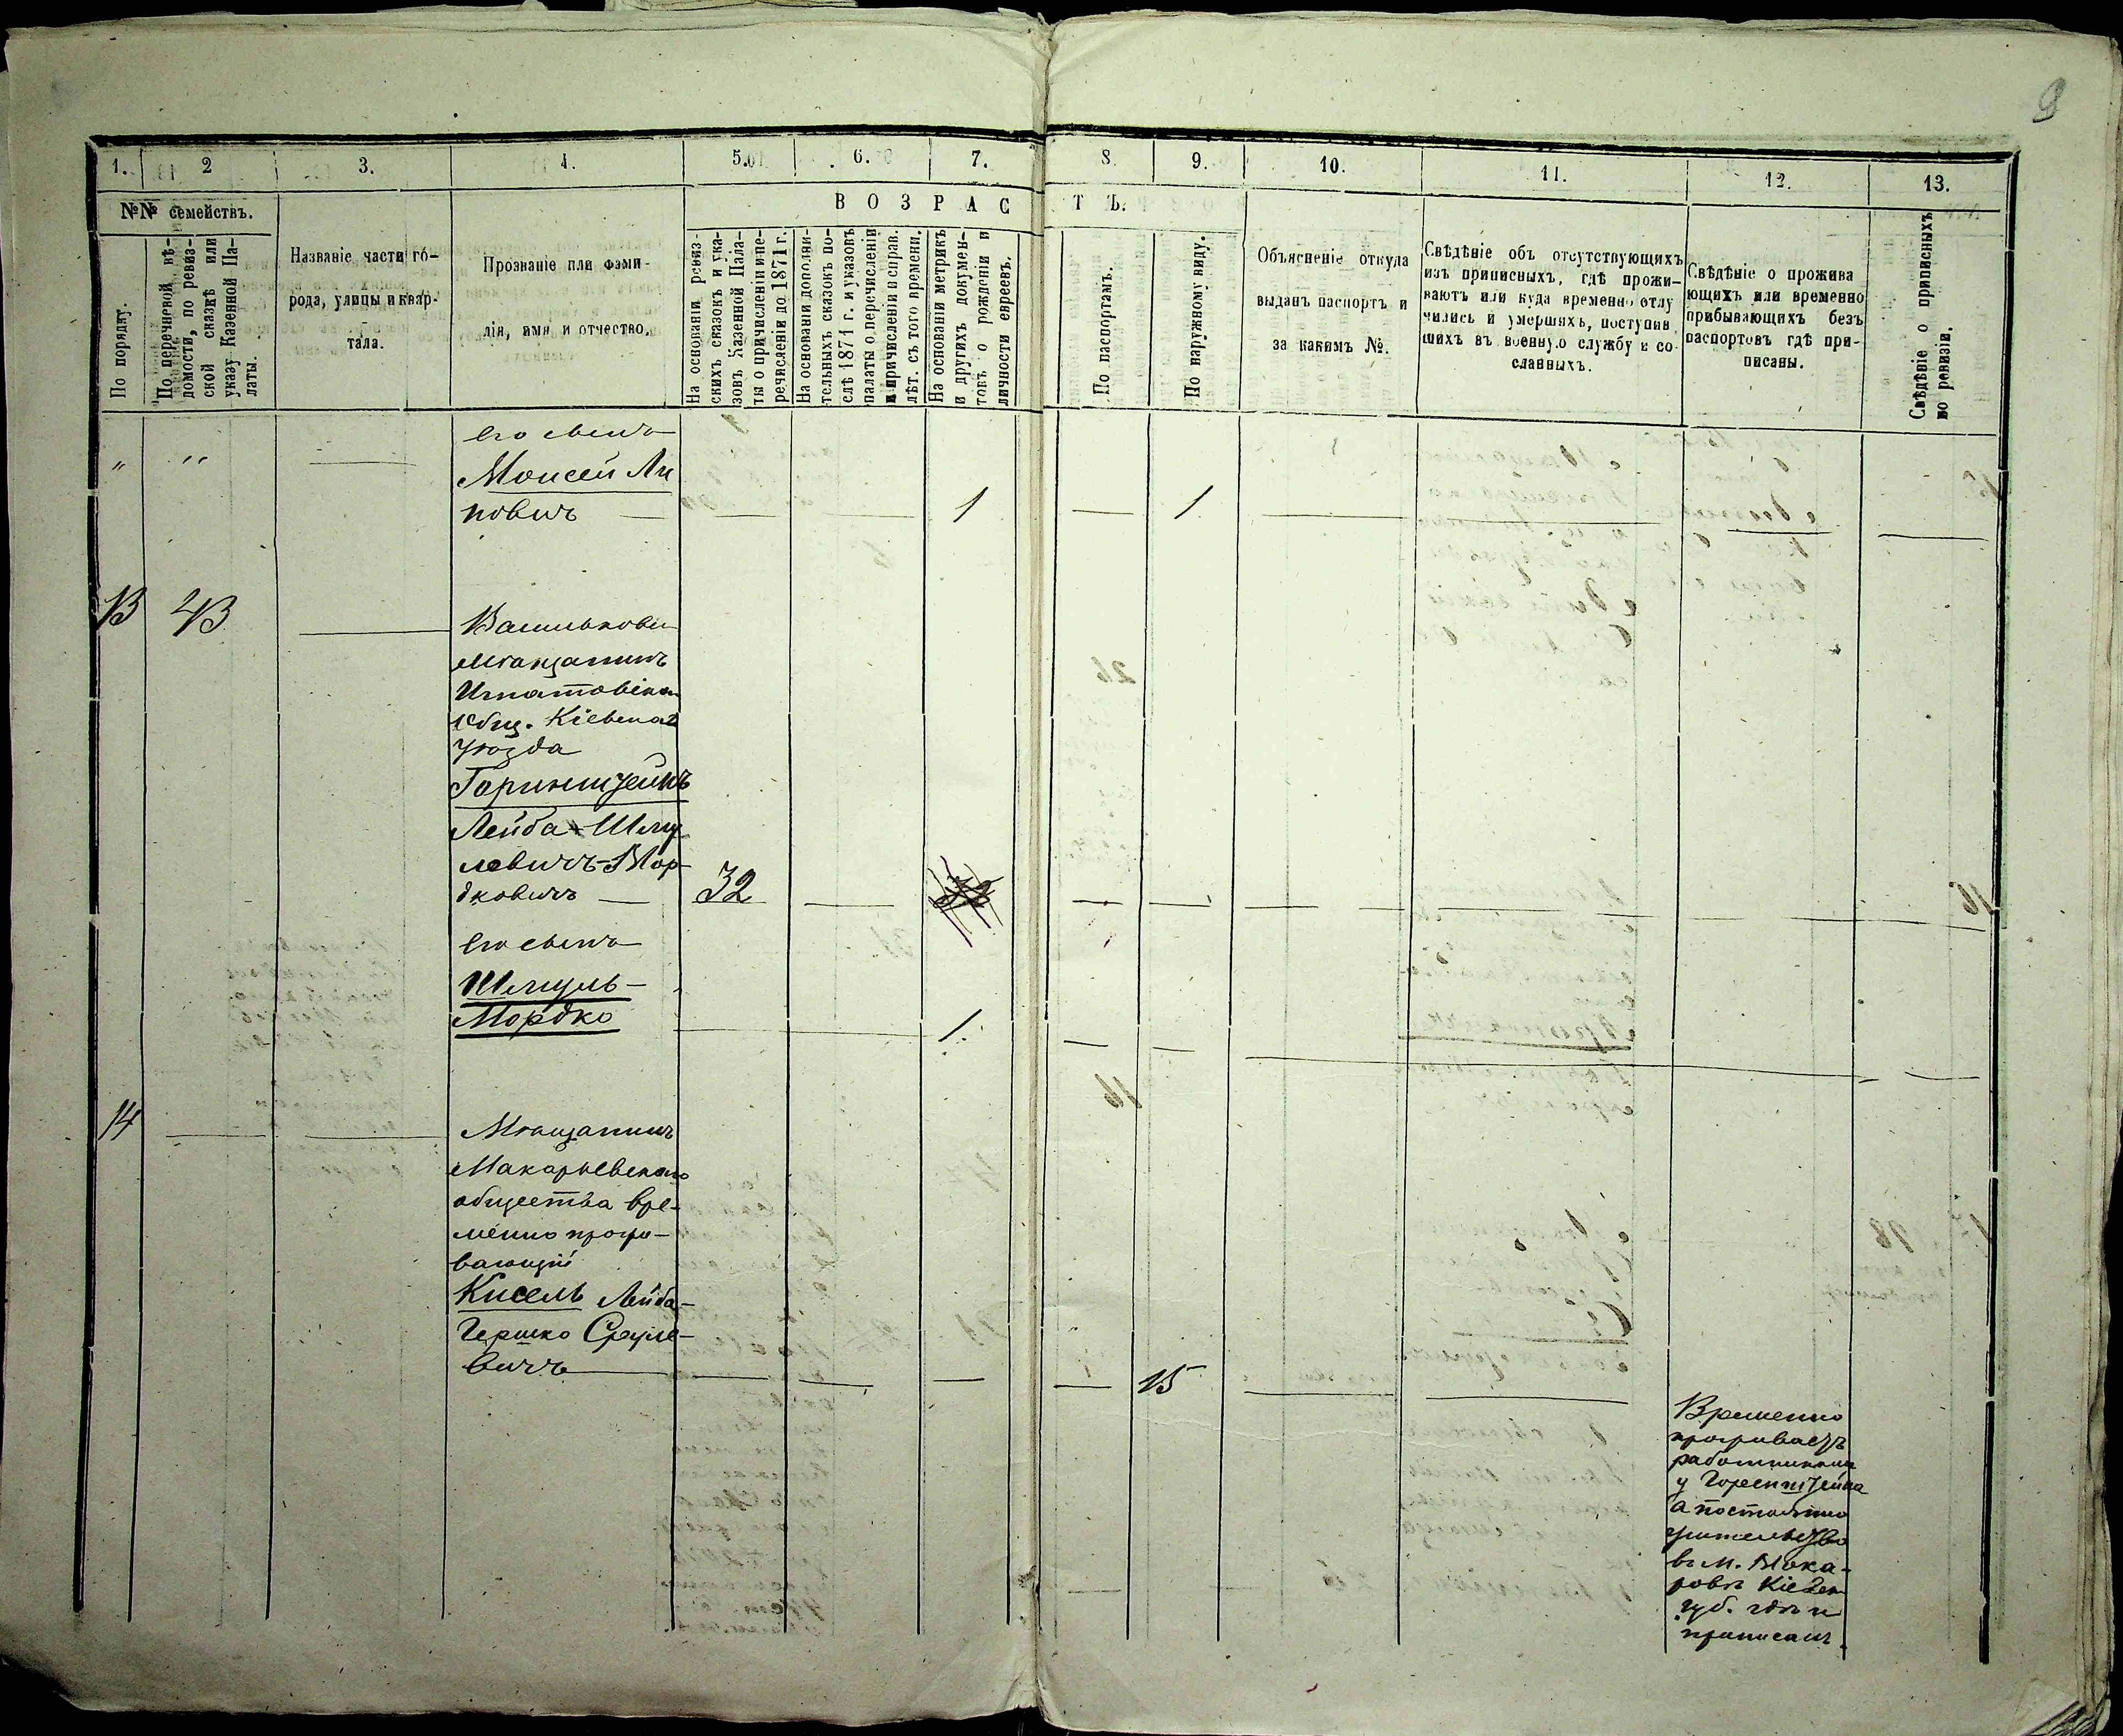 9
1. 2 3. 4. 5. 6. 7. 8. 9. 10. 11. 12. 13.
№№ семействъ.
В О З Р А С Т Ъ.
По порядку.
По перечневой вѣ-
домости, по ревиз-
ской сказкѣ или
указу Казенной Па-
латы.
Названіе части го-
рода, улицы и квар-
тала.
Прозваніе или фами-
лія, имя и отчество.
На основаніи ревиз-
скихъ сказокъ и ука-
зовъ Казенной Пала-
ты о причисленіи и пе-
речисленіи до 1871 г.
На основаніи дополни-
тельныхъ сказокъ по-
слѣ 1871 г. и указовъ
палаты о перечисленіи
и причисленіи и справ.
лѣт. съ того времени.
На основаніи метрикъ
и другихъ докумен-
товъ о рожденіи и
личности евреевъ.
По паспортамъ.
По наружному виду.
Объясненіе откуда
выданъ паспортъ и
за какимъ №.
Свѣдѣніе объ отсутствующихъ
изъ приписныхъ, гдѣ прожи-
ваютъ или куда временно отлу
чились и умершихъ, поступив
шихъ въ военную службу и со-
сланныхъ.
Свѣдѣніе о прожива
ющихъ или временно
прибывающихъ безъ
паспортовъ гдѣ при-
писаны.
Свѣдѣніе о приписныхъ
по ревизіи.
Его сынъ
" " Моисей Ли
повичъ 1 1
13 43
мѣщанинъ
общ. Кіевскаго
уѣзда
Горинштейнъ
Лейба Шму
левичъ-Мор-
дковичъ 32
Его сынъ
Шмуль-
Мордко 1.
14 Мѣщанинъ
Макарьевскаго
общества вре-
менно прожи-
вающій
Кисель Лейба-
Гершко Сруле-
вичъ 15
Временно
проживаетъ
работникомъ
у Горенштейна
а постоянно
жительство
въ м. Мака-
ровѣ Кіевск
губ. гдѣ и
приписанъ.